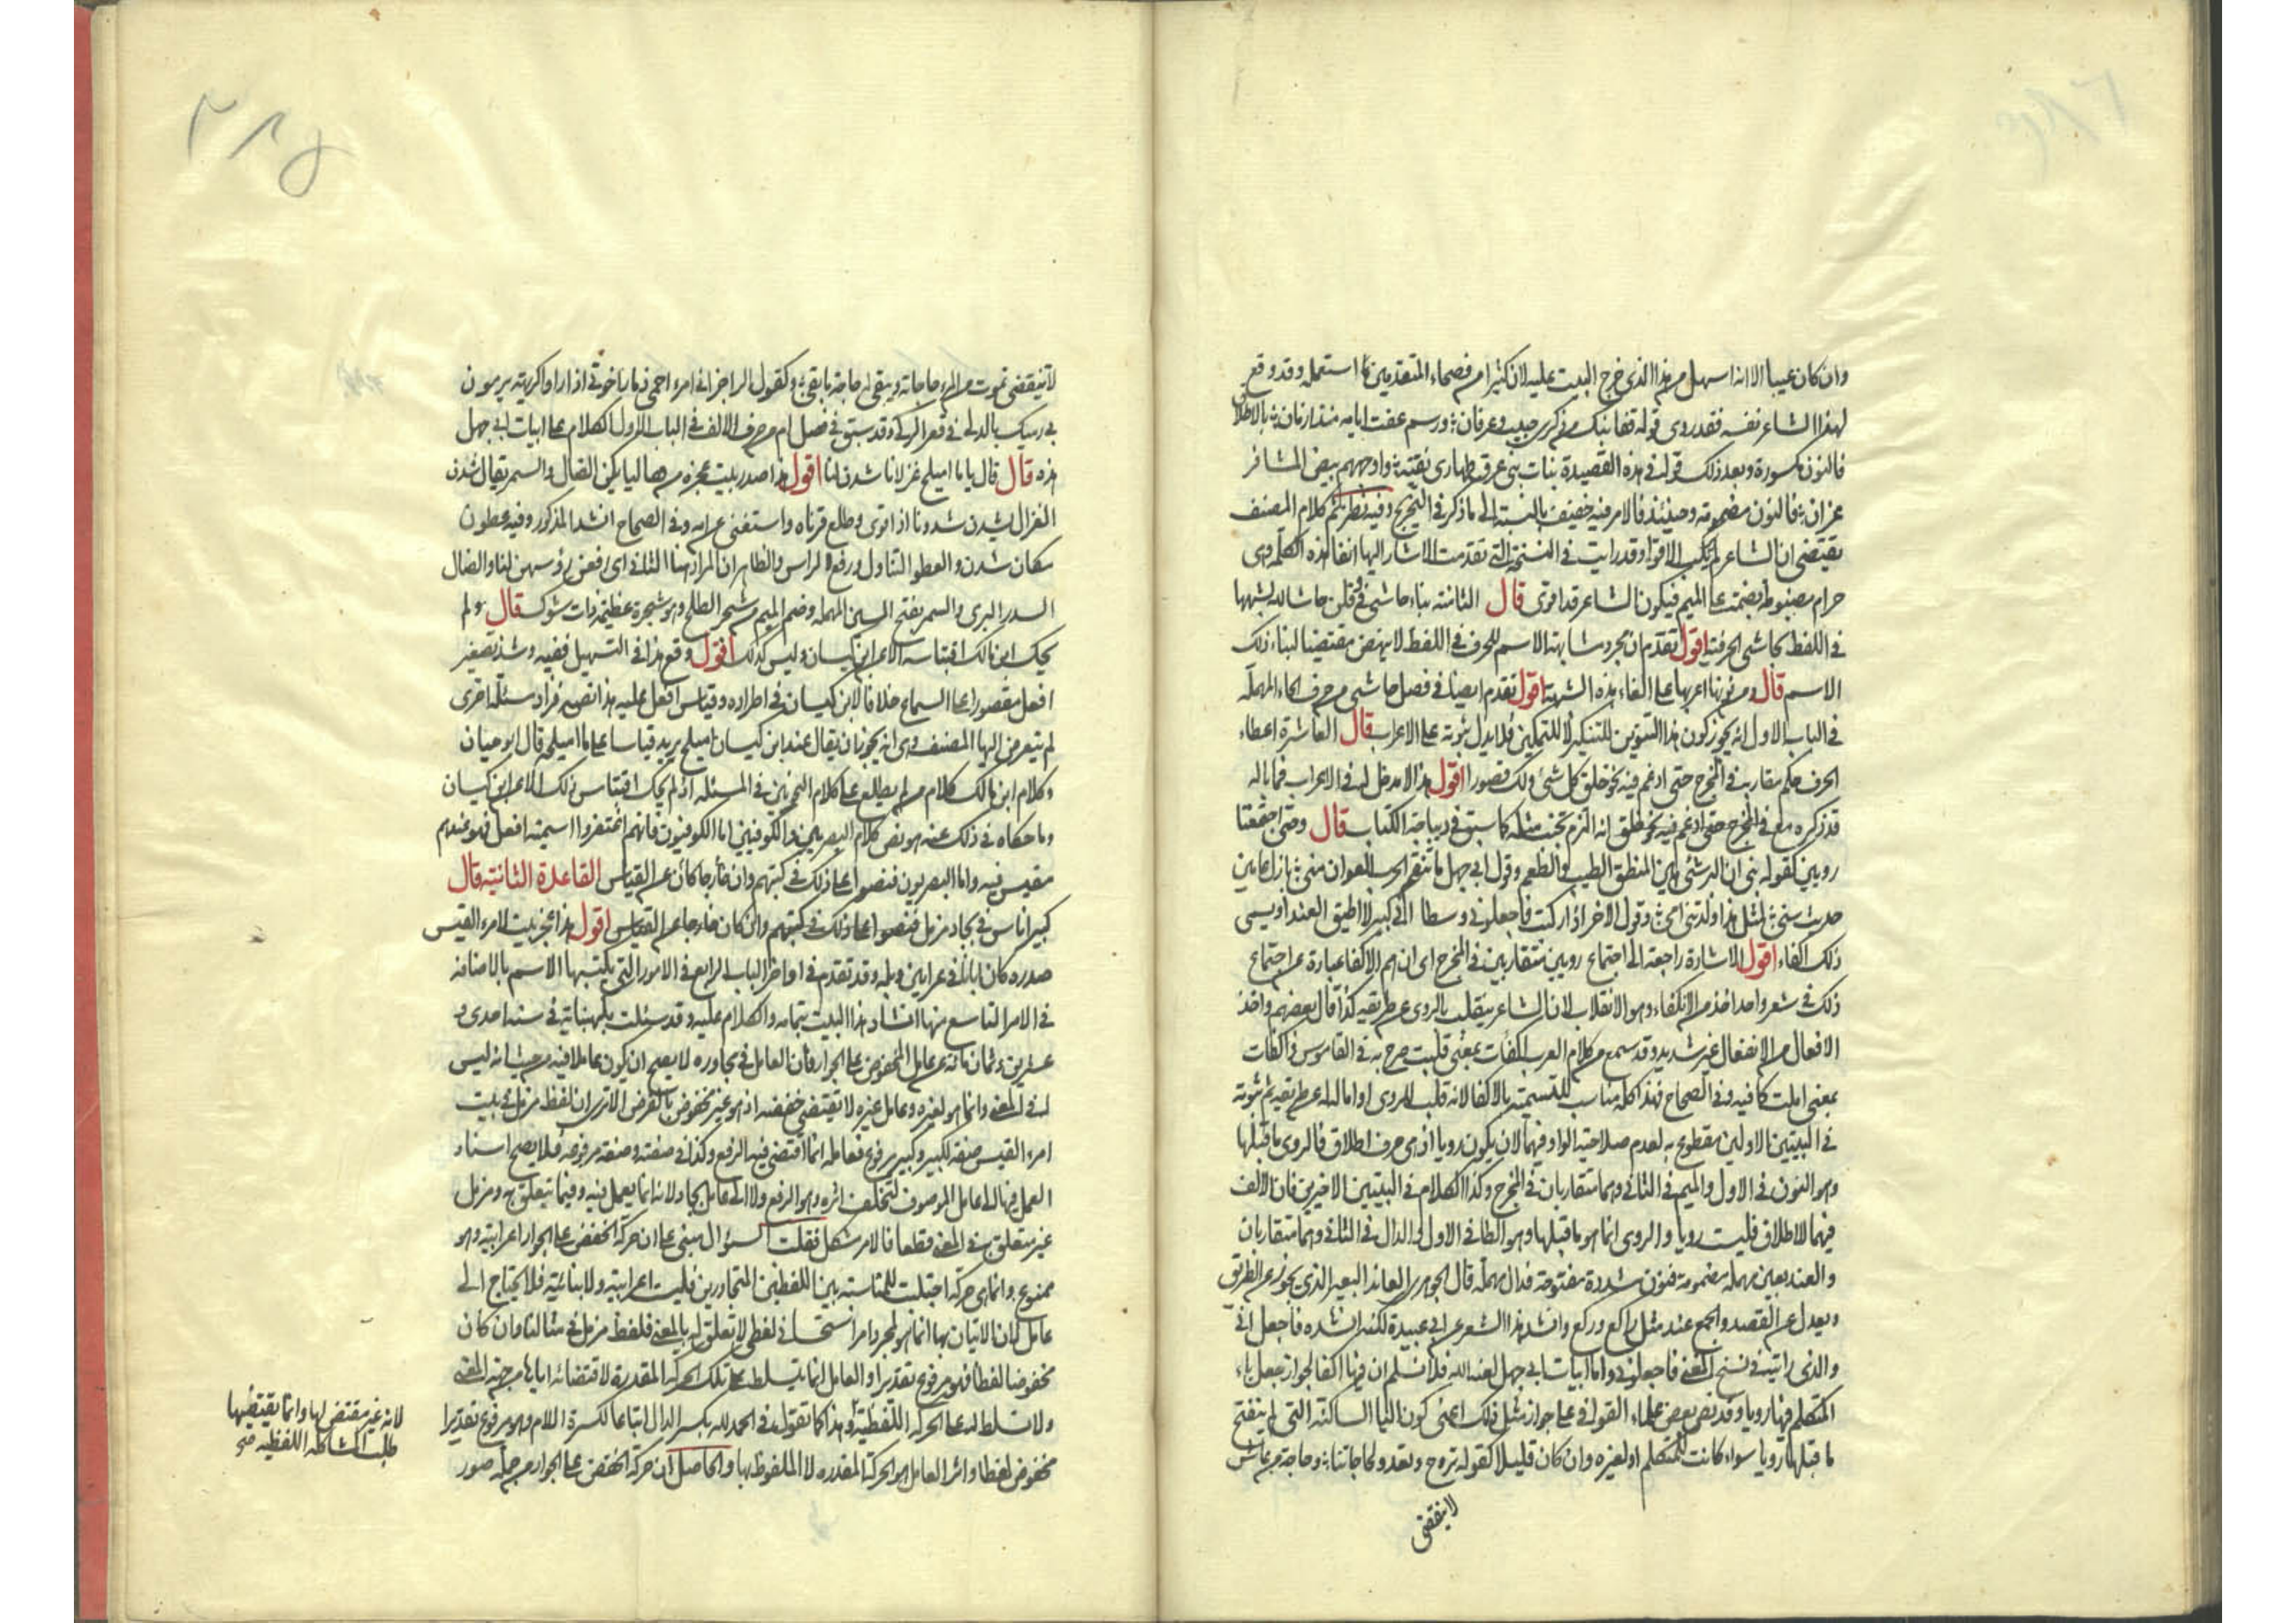 وان كان عيبا الا انه اسهل من هذا الذي خرج البيت عليه لان كثيرا من فصحاء المتقدمين قد استعمله وقد وقع
لهذا الشاعر نفسه فقد روى قوله قفا نبك من ذكرى حبيب وعرفان ورسم عفت اياته منذ ازمان بالاطلاق
فالنون مكسورة وبعد ذلك قوله في هذه القصيدة بنات بني عوف طهارى نقية واوجههم بيض المشافر
عزان فالنون مضمومة وحينئذ فالامر فيه خفيف بالنسبة الى ما ذكر في التخريج وفيه نظر ثم كلام المصنف
يقتضي ان الشاعر لم يرتكب الاقوا وقد رايت في النسخة التي تقدمت الاشارة اليها انفا هذه الكلمة وهي
حرام مضبوطة بضمة على الميم فيكون الشاعر قد اقوى قال الثامنة بناء حاشى في وقلن حاشا لله لشبهها
في اللفظ بحاشى الحرفية اقول تقدم ان مجرد مشابهة الاسم للحرف في اللفظ لا ينهض مقتضيا لبناء ذلك
الاسم قال ومن نونها اعربها على الغاء هذه الشبهة اقول تقدم ايضا في فصل حاشى من حرف الحاء المهملة
في الباب الاول انه يجوز كون هذا التنوين للتنكير لا للتمكين فلا يدل ثبوته على الاعراب قال العاشرة اعطاء
الحرف حكم مقاربه في المخرج حتى ادغم فيه نحو خلق كل شئ ولك قصورا اقول هذا لا مدخل له في الاعراب فما باله
قد ذكره مع في المخرج حتى ادغم فيه نحو خلق انه التزم تجنب مثله كما سبق في ديباجة الكتاب قال وحتى اجتمعتا
رويين كقوله بني ان البر شئ هين المنطق الطيب والطعم وقول ابي جهل ما تنقم الحرب العوان مني بازل عامين
حديث سني لمثل هذا ولدتني امي وقول الاخر اذا ركبت فاجعلوني وسطا اني كبير لا اطيق العندا ويسمى
ذلك اكفاء اقول الاشارة راجعة الى اجتماع رويين متقاربين في المخرج اي انهم الاكفا عبارة عن اجتماع
ذلك في شعر واحد اخذ من الانكفاء وهو الانقلاب لان الشاعر ينقلب بالروي عن طريقه كذا قال بعضهم واخذ
الافعال من الانفعال غير شديد وقد سمع من كلام العرب اكفات بمعنى قلبت صرح به في القاموس واكفات
بمعنى املت كما فيه وفي الصحاح فهذا كله مناسب للتسمية بالاكفا لانه قلب للروي او امالة له عن طريقه ثم ثبوته
في البيتين الاولين مقطوع به لعدم صلاحية الواو فيهما لان يكون رويا اذ هي حرف اطلاق فالروي ما قبلها
وهو النون في الاول والميم في الثاني وهما متقاربان في المخرج وكذا الكلام في البيتين الاخيرين فان الالف
فيهما للاطلاق فليست رويا والروي انما هو ما قبلها وهو الطا في الاول والدال في الثاني وهما متقاربان
والعند بعين مهملة مضمومة فنون مشددة مفتوحة فدال مهملة قال الجوهري العاند البعير الذي يجوز عن الطريق
ويعدل عن القصد والجمع عند مثل راكع وركع وانشد هذا الشعر عن ابي عبيدة لكنه انشده فاجعل اني
والذي رايته في نسخ المغني فاجعلوني واما ابيات ابي جهل لعنه الله فلا نسلم ان فيها اكفا لجواز جعل ياء
المتكلم فيها رويا وقد نص بعض علماء القوافي على جواز مثل ذلك اعني كون اليا الساكنة التي لم ينفتح
ما قبلها رويا سواء كانت للمتكلم او لغيره وان كان قليلا كقوله نروح ونغدو لحاجاتنا وحاجة من عاش
لا تنقضي
٢٨٥
لا تنقضي تموت مع المرء حاجاته ويبقى له حاجة ما بقي وكقول الراجز اني امرء احمي ذمار اخوتي اذا راوا كريهة يرمون
بي رميك بالدلوين في قعر الركي وقد سبق في فصل ام من حرف الالف في الباب الاول الكلام على ابيات ابي جهل
هذه قال قال ياما اميلح غزلانا شدن لنا اقول هذا صدر بيت عجزه من هاؤليائكن الضال والسمر يقال شدن
الغزال يشدن شدونا اذا قوى وطلع قرناه واستغنى عن امه وفي الصحاح انشد المذكور وفيه عطون
مكان شدن والعطو التناول ورفع الراس والظاهر ان المراد هنا الثاني اي رفعن رؤسهن لنا والضال
السدر البري والسمر بفتح السين المهملة وضم الميم من شجر الطلح وهو شجرة عظيمة ذات شوك قال ولم
يحك ابن مالك اقتياسه الا عن ابن كيسان وليس كذلك اقول وقع هذا في التسهيل ففيه وشذ تصغير
افعل مقصورا على السماع خلافا لابن كيسان في اطراده وقياس افعل عليه هذا نصه فزاد مسئلة اخرى
لم يتعرض اليها المصنف وهي انه يجوز ان يقال عند ابن كيسان اميلح بزيد قياسا على ما اميلحه قال ابو حيان
وكلام ابن مالك كلام من لم يطلع على كلام النحويين في المسئلة اذ لم يحك اقتياس ذلك الا عن ابن كيسان
وما حكاه في ذلك عنه هو نص كلام البصريين والكوفيين اما الكوفيون فانهم اعتقدوا اسمية افعل فهو عندهم
مقيس فيه واما البصريون فنصوا على ذلك في كتبهم وان كان خارجا عن القياس القاعدة الثانية قال
كبير اناس في بجاد مزمل فنصوا على ذلك في كتبهم وان كان خارجا عن القياس اقول هذا عجز بيت لامرء القيس
صدره كان ابانا في عرانين وبله وقد تقدم في اواخر الباب الرابع في الامور التي يكتسبها الاسم بالاضافة
في الامر التاسع منها انشاد هذا البيت بتمامه والكلام عليه وقد سئلت بكهنباية في سنة احدى و
عشرين وثمان مائة عن عامل المخفوض على الجوار فان العامل في مجاوره لا يصح ان يكون عاملا فيه من حيث انه ليس
له في المعنى وانما هو لغيره وعامل غيره لا يقتضي خفضه اذ هو غير مخفوض بالفرض الا ترى ان لفظ مزمل في بيت
امرء القيس صفة لكبير وكبير مرفوع فعامله انما اقتضى فيه الرفع وكذا في صفته وصفته مرفوعة فلا يصح اسناد
العمل فيها الى عامل الموصوف لتخلف اثره وهو الرفع ولا الى عامل بجاد لانه انما يعمل فيه وفيما يتعلق به ومزمل
غير متعلق به في المعنى قطعا فالامر مشكل فقلت السؤال مبني على ان حركة الخفض على الجوار اعرابية وهو
ممنوع وانما هي حركة اجتلبت للمناسبة بين اللفظين المتجاورين فليست اعرابية ولا بنائية فلا يحتاج الى
عامل لان الاتيان بها انما هو لمجرد امر استحساني لفظي لا تعلق له بالمعنى فلفظ مزمل في مثالنا وان كان
مخفوضا لفظا فهو مرفوع تقديرا والعامل انما يتسلط على تلك الحركة المقدرة لاقتضائه اياها من جهة المعنى
ولا تسلط له على الحركة اللفظية وهذا كما تقول في الحمد لله بكسر الدال اتباعا لكسرة اللام وهو مرفوع تقديرا
مخفوض لفظا واثر العامل هو الحركة المقدرة لا الملفوظ بها والحاصل ان حركة الخفض على الجوار من جملة صور
لانه غير مقتض لها وانما يقتضيها
طلب المشاكلة اللفظية صح